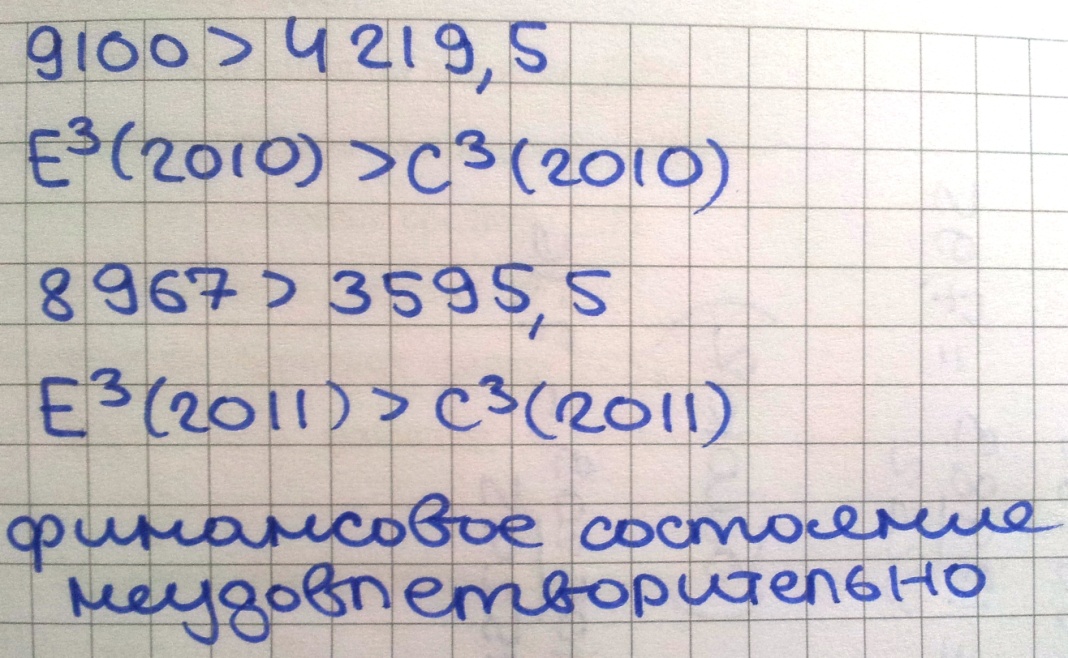 9100 > 4219,5
E³(2010) > C³(2010)
8967 > 3595,5
E³(2011) > C³(2011)
финансовое состояние
неудовлетворительно